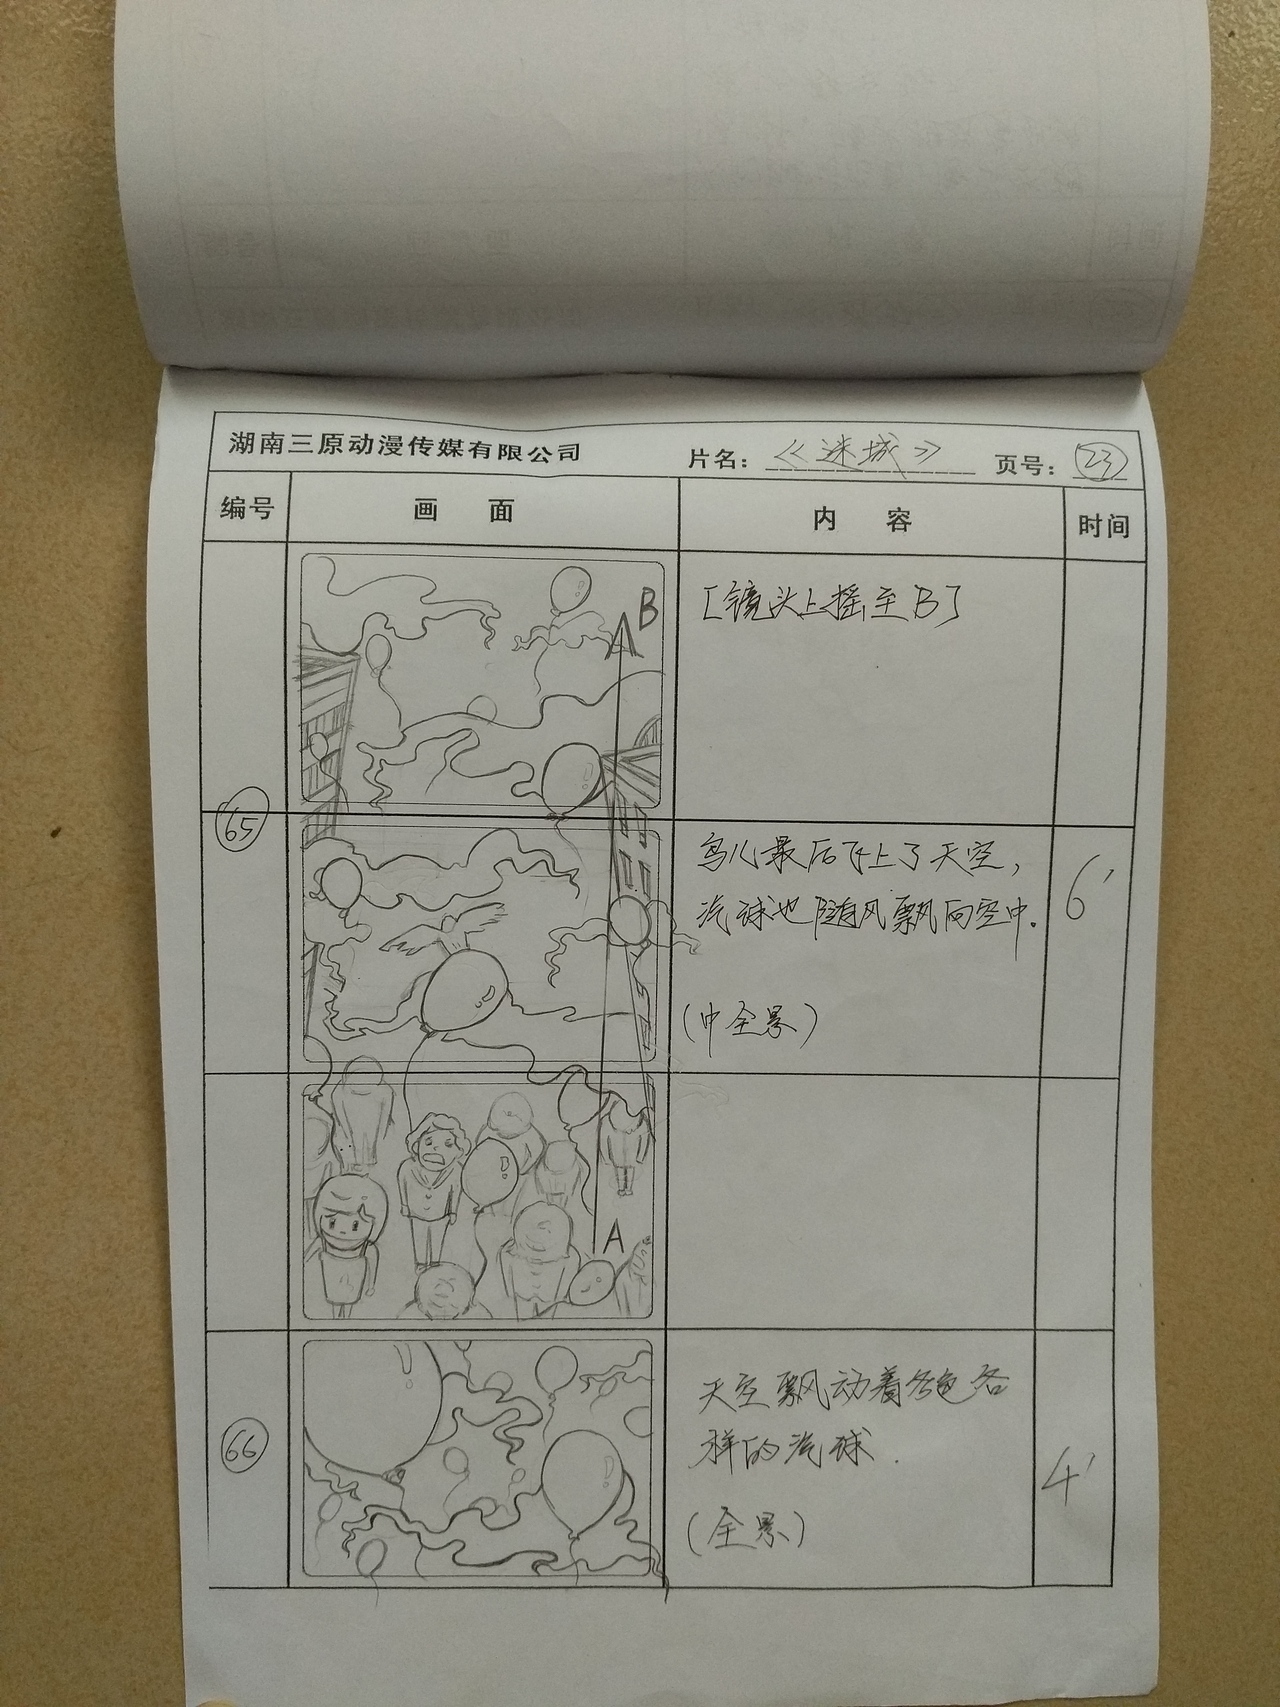 湖南三原动漫传媒有限公司 片名：《迷城》 页号：23
编号 画 面 内 容 时间
B
[镜头上摇至B]
65
鸟儿最后飞上了天空，
汽球也随风飘向空中.
6'
(中全景)
A
66
天空飘动着各色各
样的汽球.
4'
(全景)